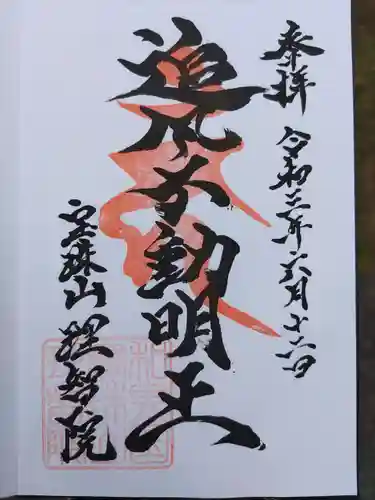 奉拝
令和三年六月十六日
追風不動明王
宝珠山理智院